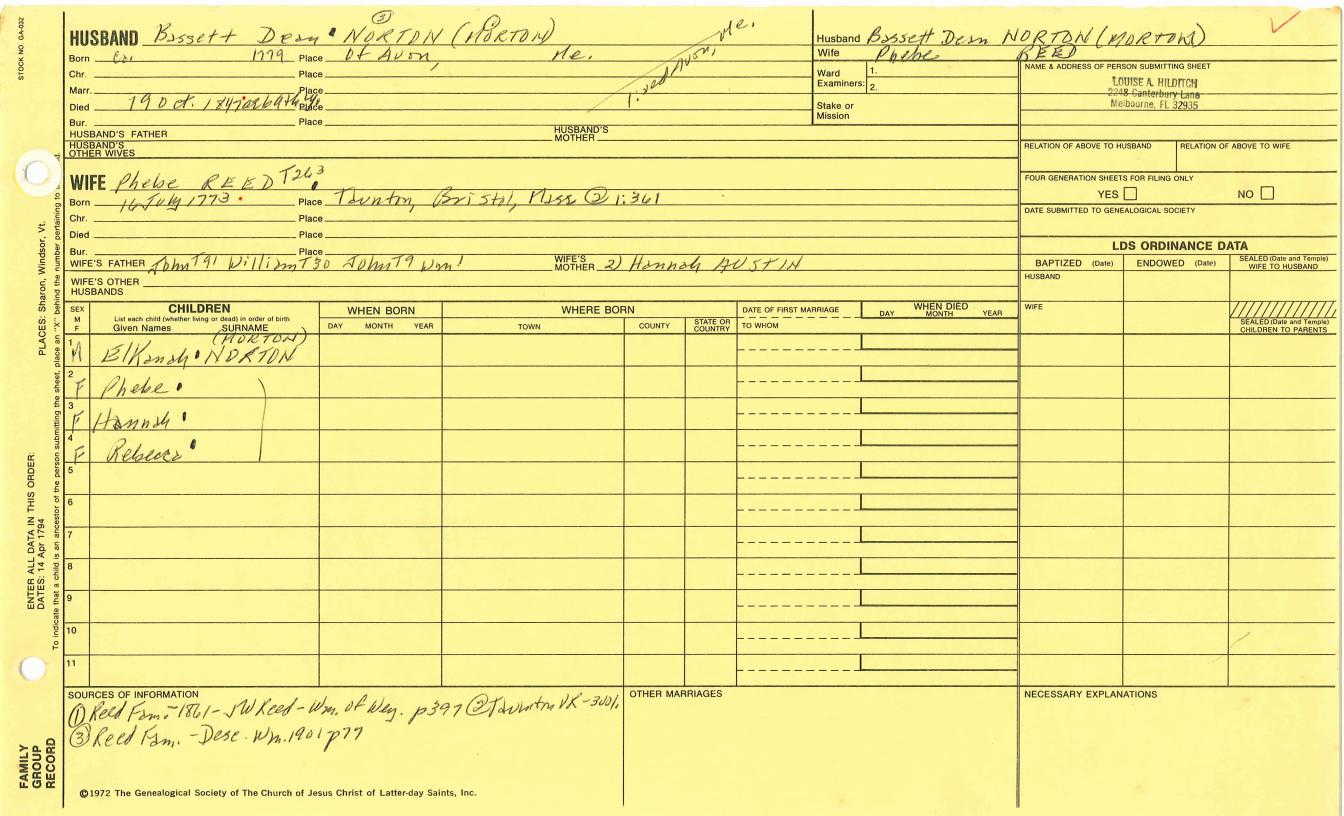 STOCK NO. GA-032
③
HUSBAND Bassett Dean NORTON (MORTON)
Born 1779 Place Of Avon, Me.
Chr. Place
Marr. Place
Died 19 Oct. Place
Bur. Place
lived Avon, Me.
HUSBAND'S FATHER HUSBAND'S MOTHER
HUSBAND'S OTHER WIVES
WIFE Phebe REED T263
Born 16 July 1773 Place Taunton, Bristol, Mass ② 1:361
Chr. Place
Died Place
Bur. Place
WIFE'S FATHER John T91 William T30 John T9 Wm¹ WIFE'S MOTHER 2) Hannah AUSTIN
WIFE'S OTHER HUSBANDS
Husband Bassett Dean NORTON (MORTON)
Wife Phebe REED
Ward Examiners: 1.
2.
Stake or Mission
NAME & ADDRESS OF PERSON SUBMITTING SHEET
LOUISE A. HILDITCH
2248 Canterbury Lane
Melbourne, FL 32935
RELATION OF ABOVE TO HUSBAND RELATION OF ABOVE TO WIFE
FOUR GENERATION SHEETS FOR FILING ONLY
YES NO
DATE SUBMITTED TO GENEALOGICAL SOCIETY
LDS ORDINANCE DATA
BAPTIZED (Date) ENDOWED (Date) SEALED (Date and Temple) WIFE TO HUSBAND
HUSBAND
WIFE
SEALED (Date and Temple) CHILDREN TO PARENTS
SEX M F
CHILDREN
List each child (whether living or dead) in order of birth
Given Names SURNAME
WHEN BORN
DAY MONTH YEAR
WHERE BORN
TOWN COUNTY STATE OR COUNTRY
DATE OF FIRST MARRIAGE
TO WHOM
WHEN DIED
DAY MONTH YEAR
(MORTON)
1 M ElKanah NORTON
2 F Phebe
3 F Hannah
4 F Rebecca
5
6
7
8
9
10
11
SOURCES OF INFORMATION
① Reed Fam.-1861- JW Reed-Wm. of Wey. p397 ② Taunton VR-
③ Reed Fam. -Desc. Wm. 1901 p77
OTHER MARRIAGES
NECESSARY EXPLANATIONS
©1972 The Genealogical Society of The Church of Jesus Christ of Latter-day Saints, Inc.
FAMILY GROUP RECORD
ENTER ALL DATA IN THIS ORDER:
DATES: 14 Apr 1794
PLACES: Sharon, Windsor, Vt.
To indicate that a child is an ancestor of the person submitting the sheet, place an "X" behind the number pertaining to